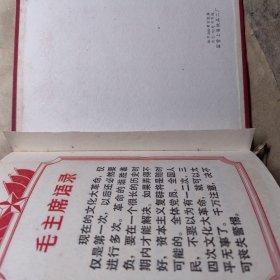 毛主席语录
现在的文化大革命，仅
仅是第一次，以后还必然要
进行多次。革命的谁胜谁
负，要在一个很长的历史时
期内才能解决。如果弄得不
好，资本主义复辟将是随时
可能的。全体党员，全国人
民，不要以为有一二次、三
四次文化大革命，就可以太
平无事了。千万注意，决不
可丧失警惕。